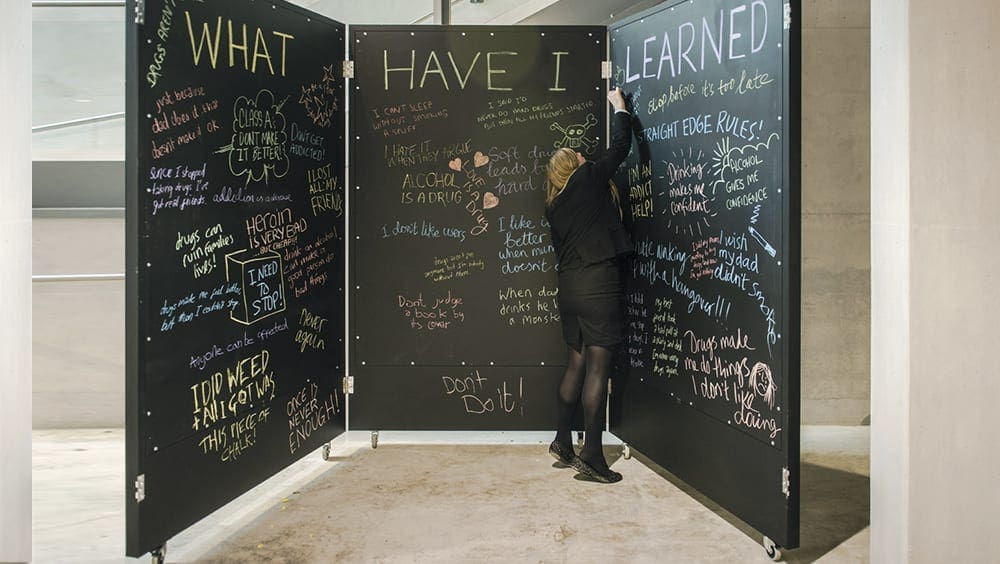 WHAT
DRUGS AREN'T
just because
dad does it that
doesn't make it OK
CLASS A
DON'T MAKE
IT BETTER!
DON'T GET
ADDICTED!
SINCE I stopped
taking drugs I've
got real friends.
addiction is a disease
I LOST
ALL MY
FRIENDS.
drugs can
ruin families
lives!
Heroin
IS VERY BAD
BUT CHEAP!
drink an alcohol
can make a
good person do
bad things
I NEED
TO
STOP!
drugs made me feel better
but then I couldn't stop
never
again
Anyone can be affected
I DID WEED
+ ALL I GOT WAS
THIS PIECE OF
CHALK!
ONCE IS
NEVER
ENOUGH!
HAVE I
I CAN'T SLEEP
WITHOUT SMOKING
A SPLIFF
I SAID I'D
NEVER DO HARD DRUGS
BUT THEN ALL MY FRIENDS STARTED
I HATE IT
WHEN THEY ARGUE
LOVE
IS A
DRUG
Soft drugs
leads to
hard
ALCOHOL
IS A DRUG
I don't like users
I like it
better
when mum
doesn't
drugs isn't
anymore but I'm nobody
without them
Don't judge
a book by
its cover
When dad
drinks he
a monster
Don't
Do it!
LEARNED
Stop before it's too late
STRAIGHT EDGE RULES!
I'M AN
ADDICT
HELP!
Drinking
makes me
confident
ALCOHOL
GIVES ME
CONFIDENCE
I hate waking
up with a
hangover!!!
I wish
my dad
didn't
smoke
my best
friend
Drugs made
me do things
I don't like
doing